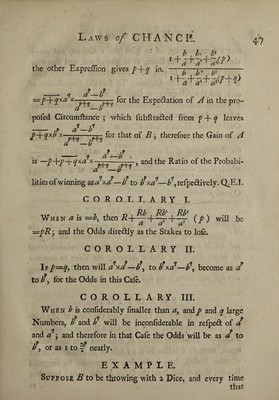 LAWS of CHANCE. 47
1 + b/a + b²/a² (p)
the other Expression gives p+q in.
1 + b/a + b²/a² + b³/a³ (p+q)
= p+q × a^q × (a^p − b^p)/(a^{p+q} − b^{p+q}) for the Expectation of A in the pro-
posed Circumstance ; which substracted from p + q leaves
p+q × b^p × (a^q − b^q)/(a^{p+q} − b^{p+q}) for that of B ; therefore the Gain of A
is −p + p+q × a^q × (a^p − b^p)/(a^{p+q} − b^{p+q}) , and the Ratio of the Probabi-
lities of winning as a^q × a^p − b^p to b^p × a^q − b^q, respectively. Q.E.I.
COROLLARY I.
WHEN a is =b, then R + Rb/a + Rb²/a² + Rb³/a³ (p) will be
=pR; and the Odds directly as the Stakes to lose.
COROLLARY II.
IF p=q, then will a^q × a^p − b^p, to b^p × a^q − b^q, become as a^p
to b^p, for the Odds in this Case.
COROLLARY III.
WHEN b is considerably smaller than a, and p and q large
Numbers, b^p and b^q will be inconsiderable in respect of a^p
and a^q; and therefore in that Case the Odds will be as a^p to
b^p, or as 1 to b^p/a^p nearly.
EXAMPLE.
SUPPOSE B to be throwing with 2 Dice, and every time
that